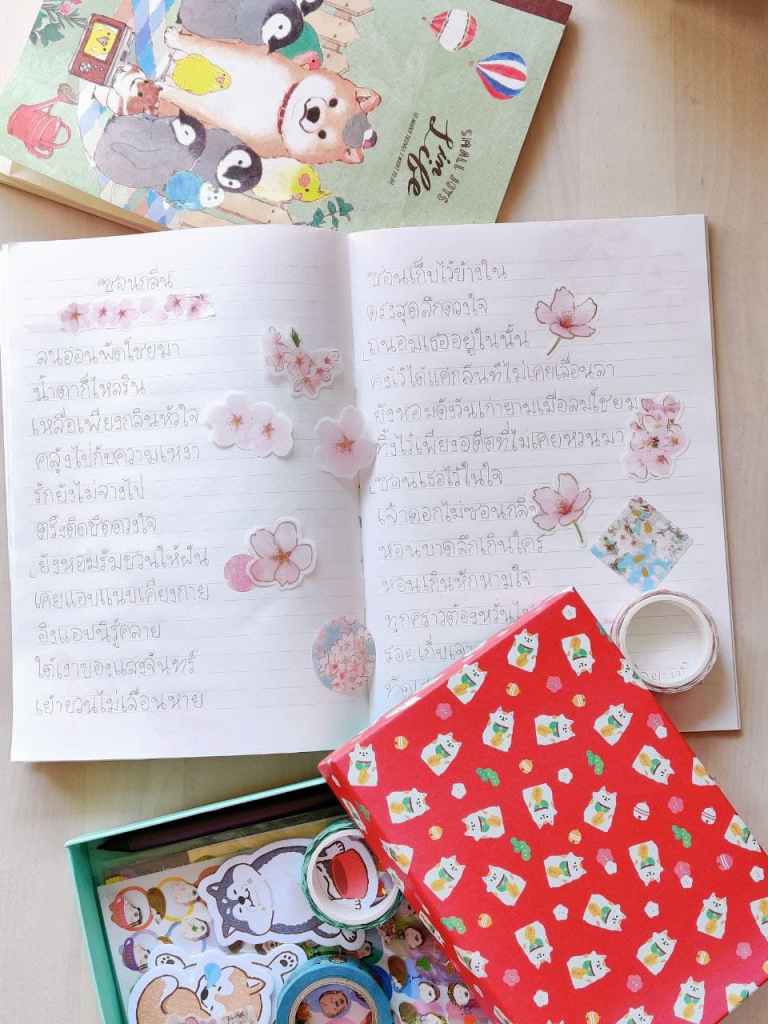 SMALL JOYS
in Life
ซ่อนกลิ่น
ลมอ่อนพัดโชยมา
น้ำตาก็ไหลริน
เหลือเพียงกลิ่นหัวใจ
คลุ้งไปกับความเหงา
รักยังไม่จางไป
ตรึงติดชิดดวงใจ
ยังหอมรัมจวนให้ฝัน
เคยแอบแนบเคียงกาย
อิงแอบมิรู้คลาย
ใต้เงาของแสงจันทร์
เย้ายวนไม่เลือนหาย
ซ่อนเก็บไว้ข้างใน
ตรงสุดลึกดวงใจ
ถนอมเธออยู่ในนั้น
คงไว้ได้แต่กลิ่นที่ไม่เคยเลือนลา
ยังหอมดังวันเก่ายามเมื่อลมโชยมา
ทิ้งไว้เพียงอดีตที่ไม่เคยหวนมา
ซ่อนเธอไว้ในใจ
เจ้าดอกไม่ซ่อนกลิ่น
หอนบาดลึกเกินใคร
หอมเกินหักห้ามใจ
ทุกคราวต้องหวั่นไหว